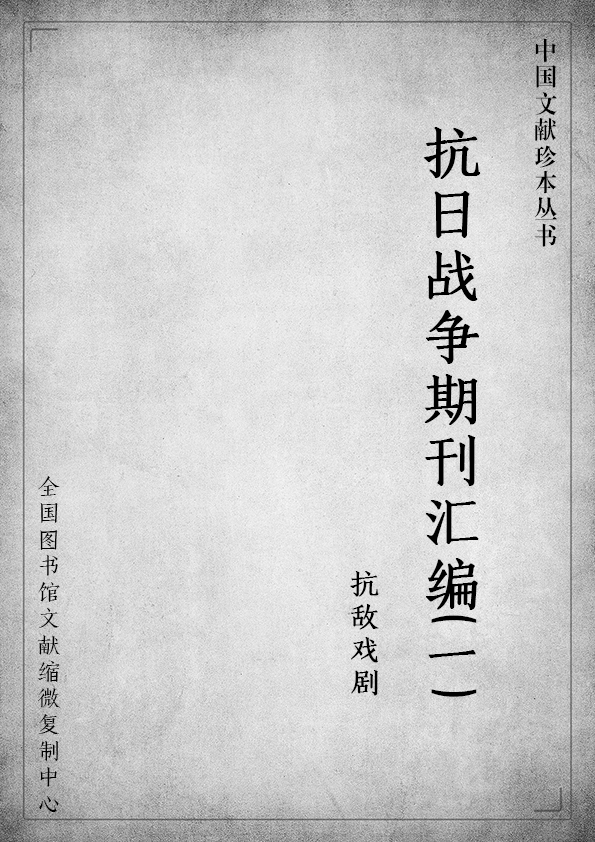 中国文献珍本丛书
抗日战争期刊汇编(一)
抗敌戏剧
全国图书馆文献缩微复制中心